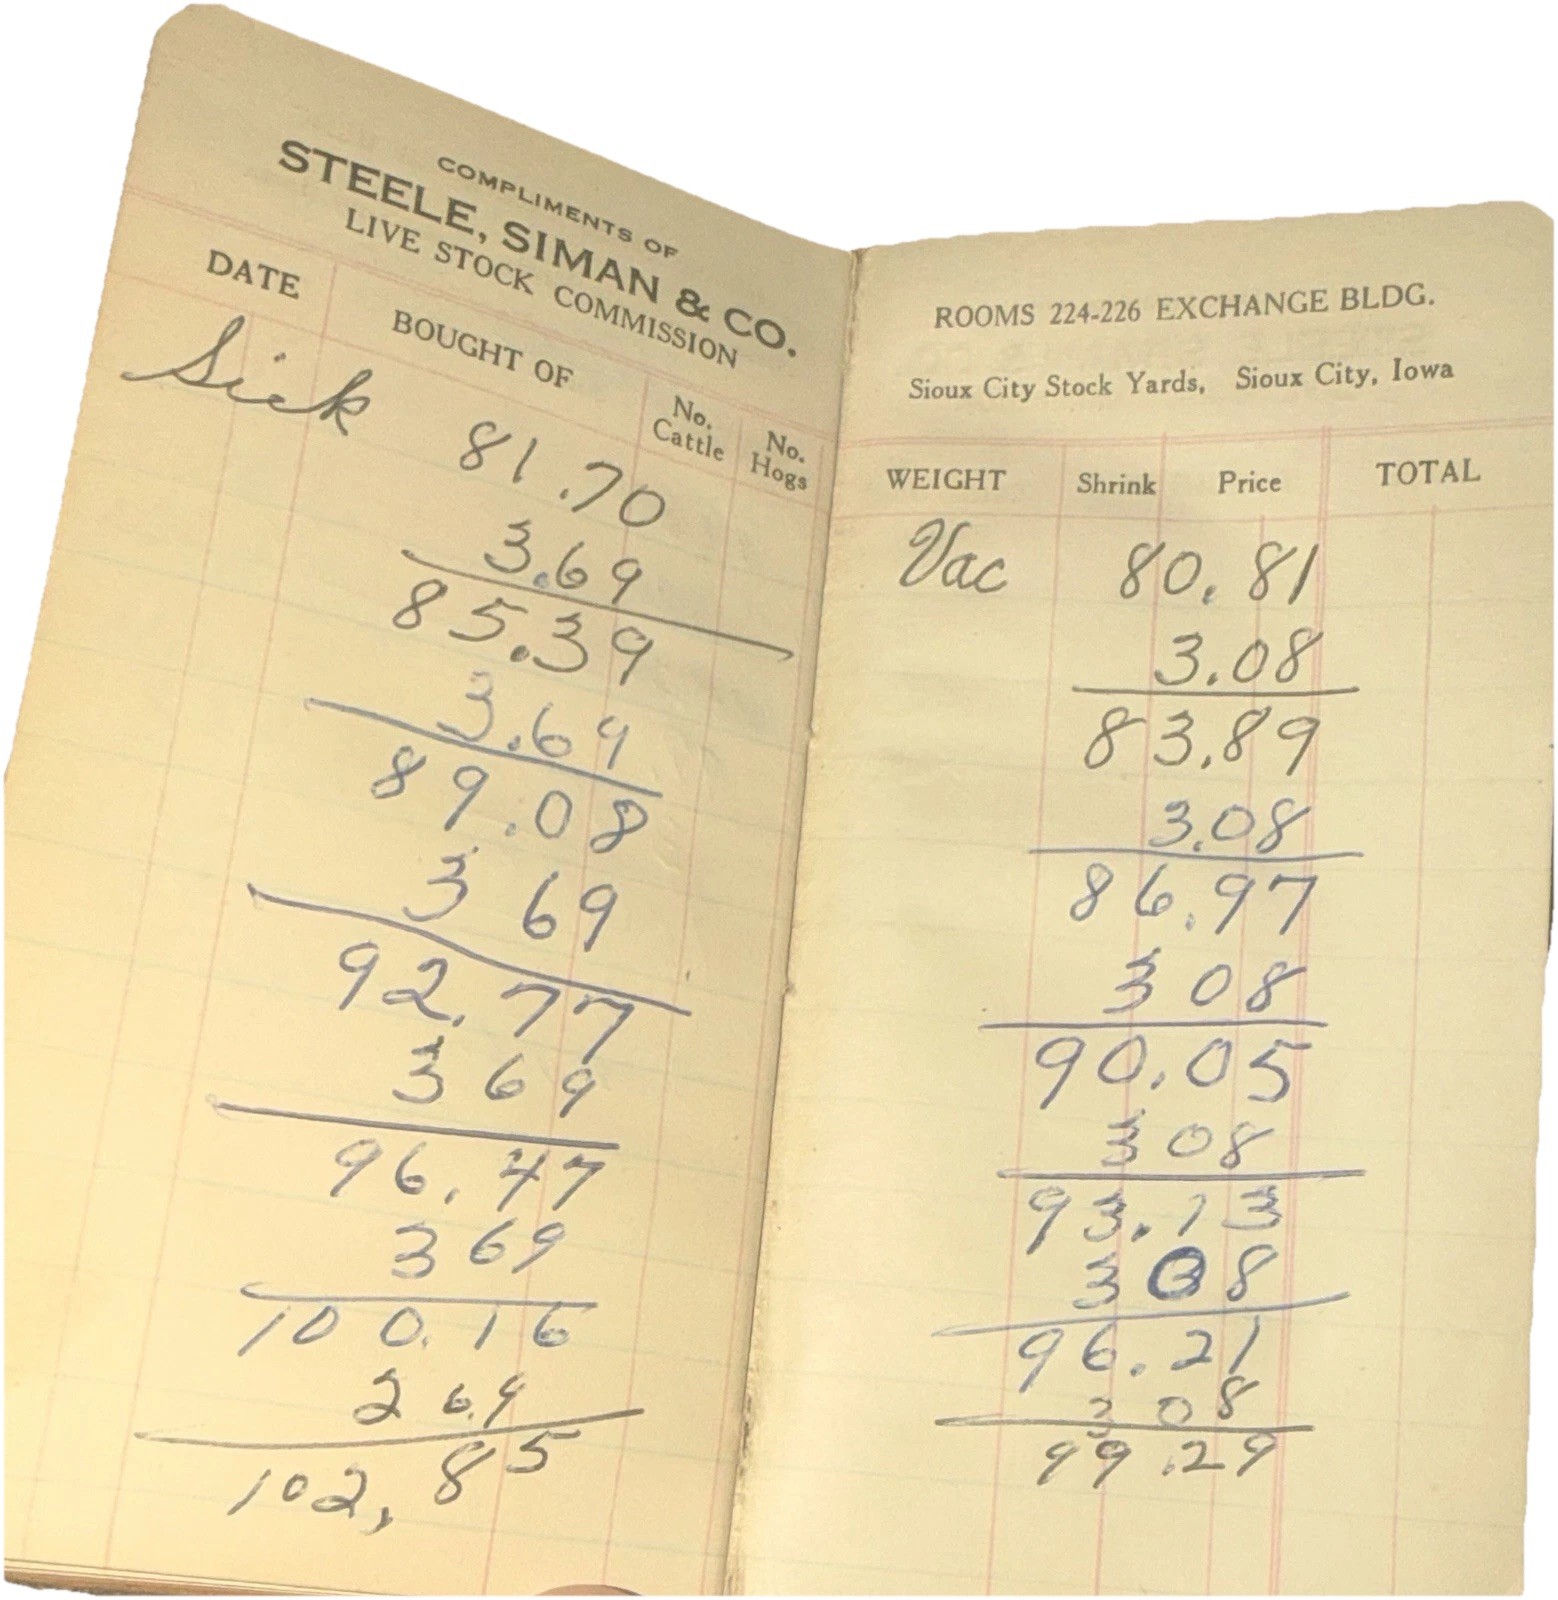 COMPLIMENTS OF
STEELE, SIMAN & CO.
LIVE STOCK COMMISSION
DATE BOUGHT OF No. Cattle No. Hogs
Sick 81.70
3.69
85.39
3.69
89.08
3 69
92.77
3 69
96.47
3 69
100.16
2 6.9
102.85
ROOMS 224-226 EXCHANGE BLDG.
Sioux City Stock Yards, Sioux City, Iowa
WEIGHT Shrink Price TOTAL
Vac 80.81
3.08
83.89
3.08
86.97
3 08
90.05
3 08
93.13
3 08
96.21
3 08
99.29